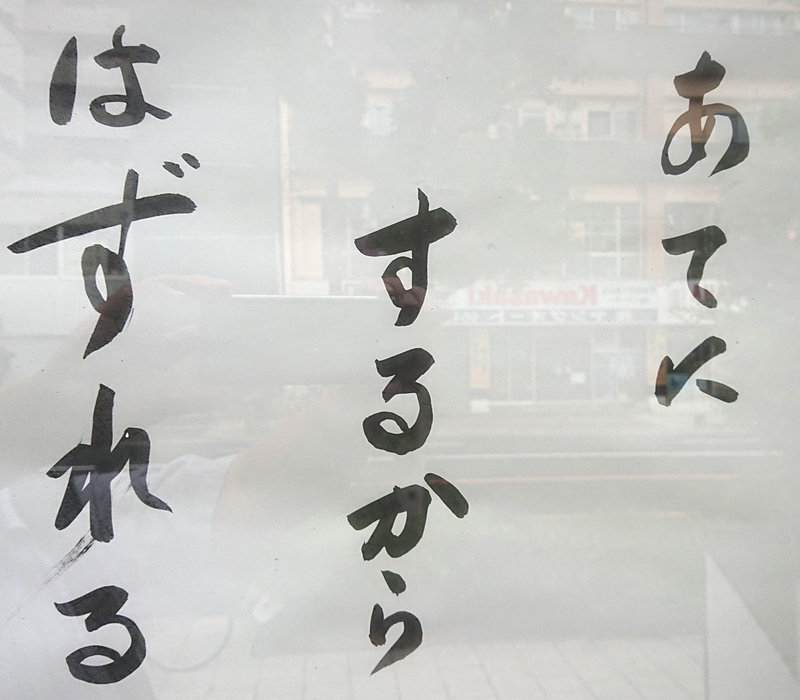 あてに
するから
はずれる
Kawasaki